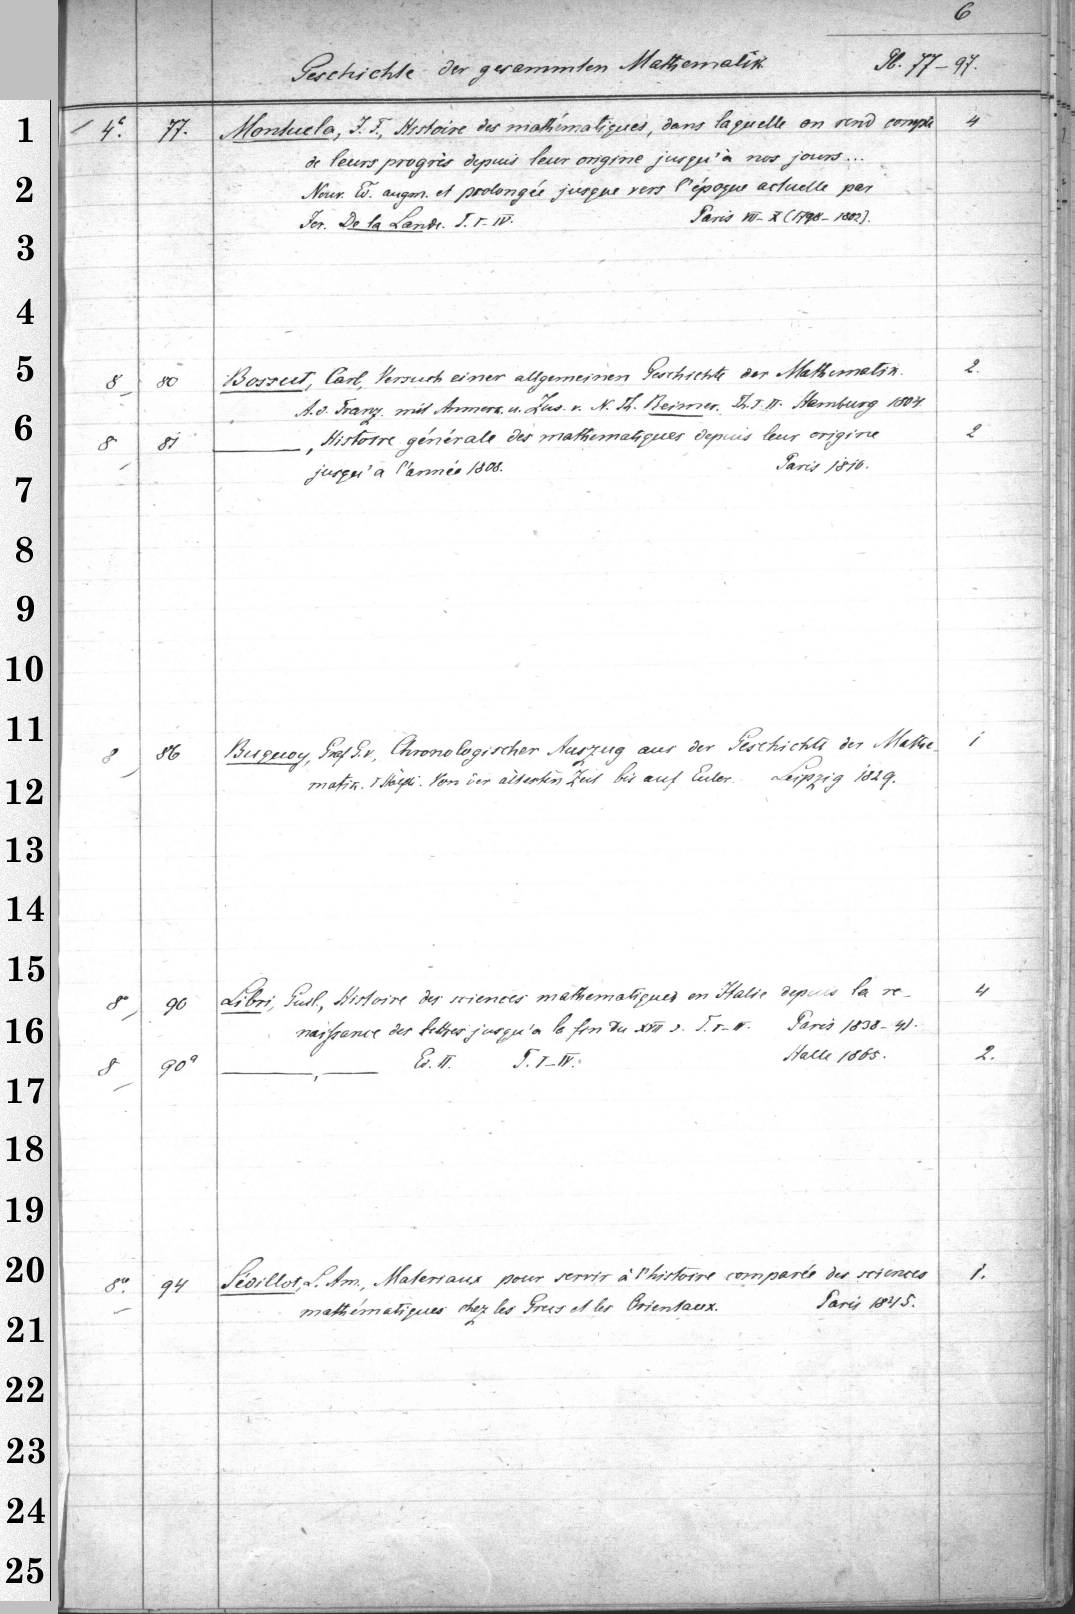 6
Geschichte der gesammten Mathematik Pl. 77-97.
1
2
3
4
5
6
7
8
9
10
11
12
13
14
15
16
17
18
19
20
21
22
23
24
25
4°. 77. Montucla, J. F., Histoire des mathématiques, dans laquelle on rend compte 4
de leurs progrès depuis leur origine jusqu'à nos jours...
Nouv. Ed. augm. et prolongée jusque vers l'époque actuelle par
Jer. De la Lande. T. I-IV. Paris VII-X (1798-1802).
8 80 Bossut, Carl, Versuch einer allgemeinen Geschichte der Mathematik. 2.
A. d. Franz. mit Anmerk. u. Zus. v. N. Th. Reimer. Th. I. II. Hamburg 1804.
8 81 ———, Histoire générale des mathematiques depuis leur origine 2
jusqu'à l'année 1808. Paris 1810.
8 86 Buquoy, Graf G. v., Chronologischer Auszug aus der Geschichte der Mathe- 1
matik. Von der ältesten Zeit bis auf Euler. Leipzig 1829.
8° 90 Libri, Gusl., Histoire des sciences mathematiques en Italie depuis la re- 4
naissance des lettres jusqu'a la fin du XVII s. T. I-IV. Paris 1838-41.
8 90a ———, ——— Ed. II. T. I-IV. Halle 1865. 2.
8°. 94 Sédillot, L. Am., Materiaux pour servir à l'histoire comparée des sciences 1.
mathématiques chez les Grecs et les Orientaux. Paris 1845.